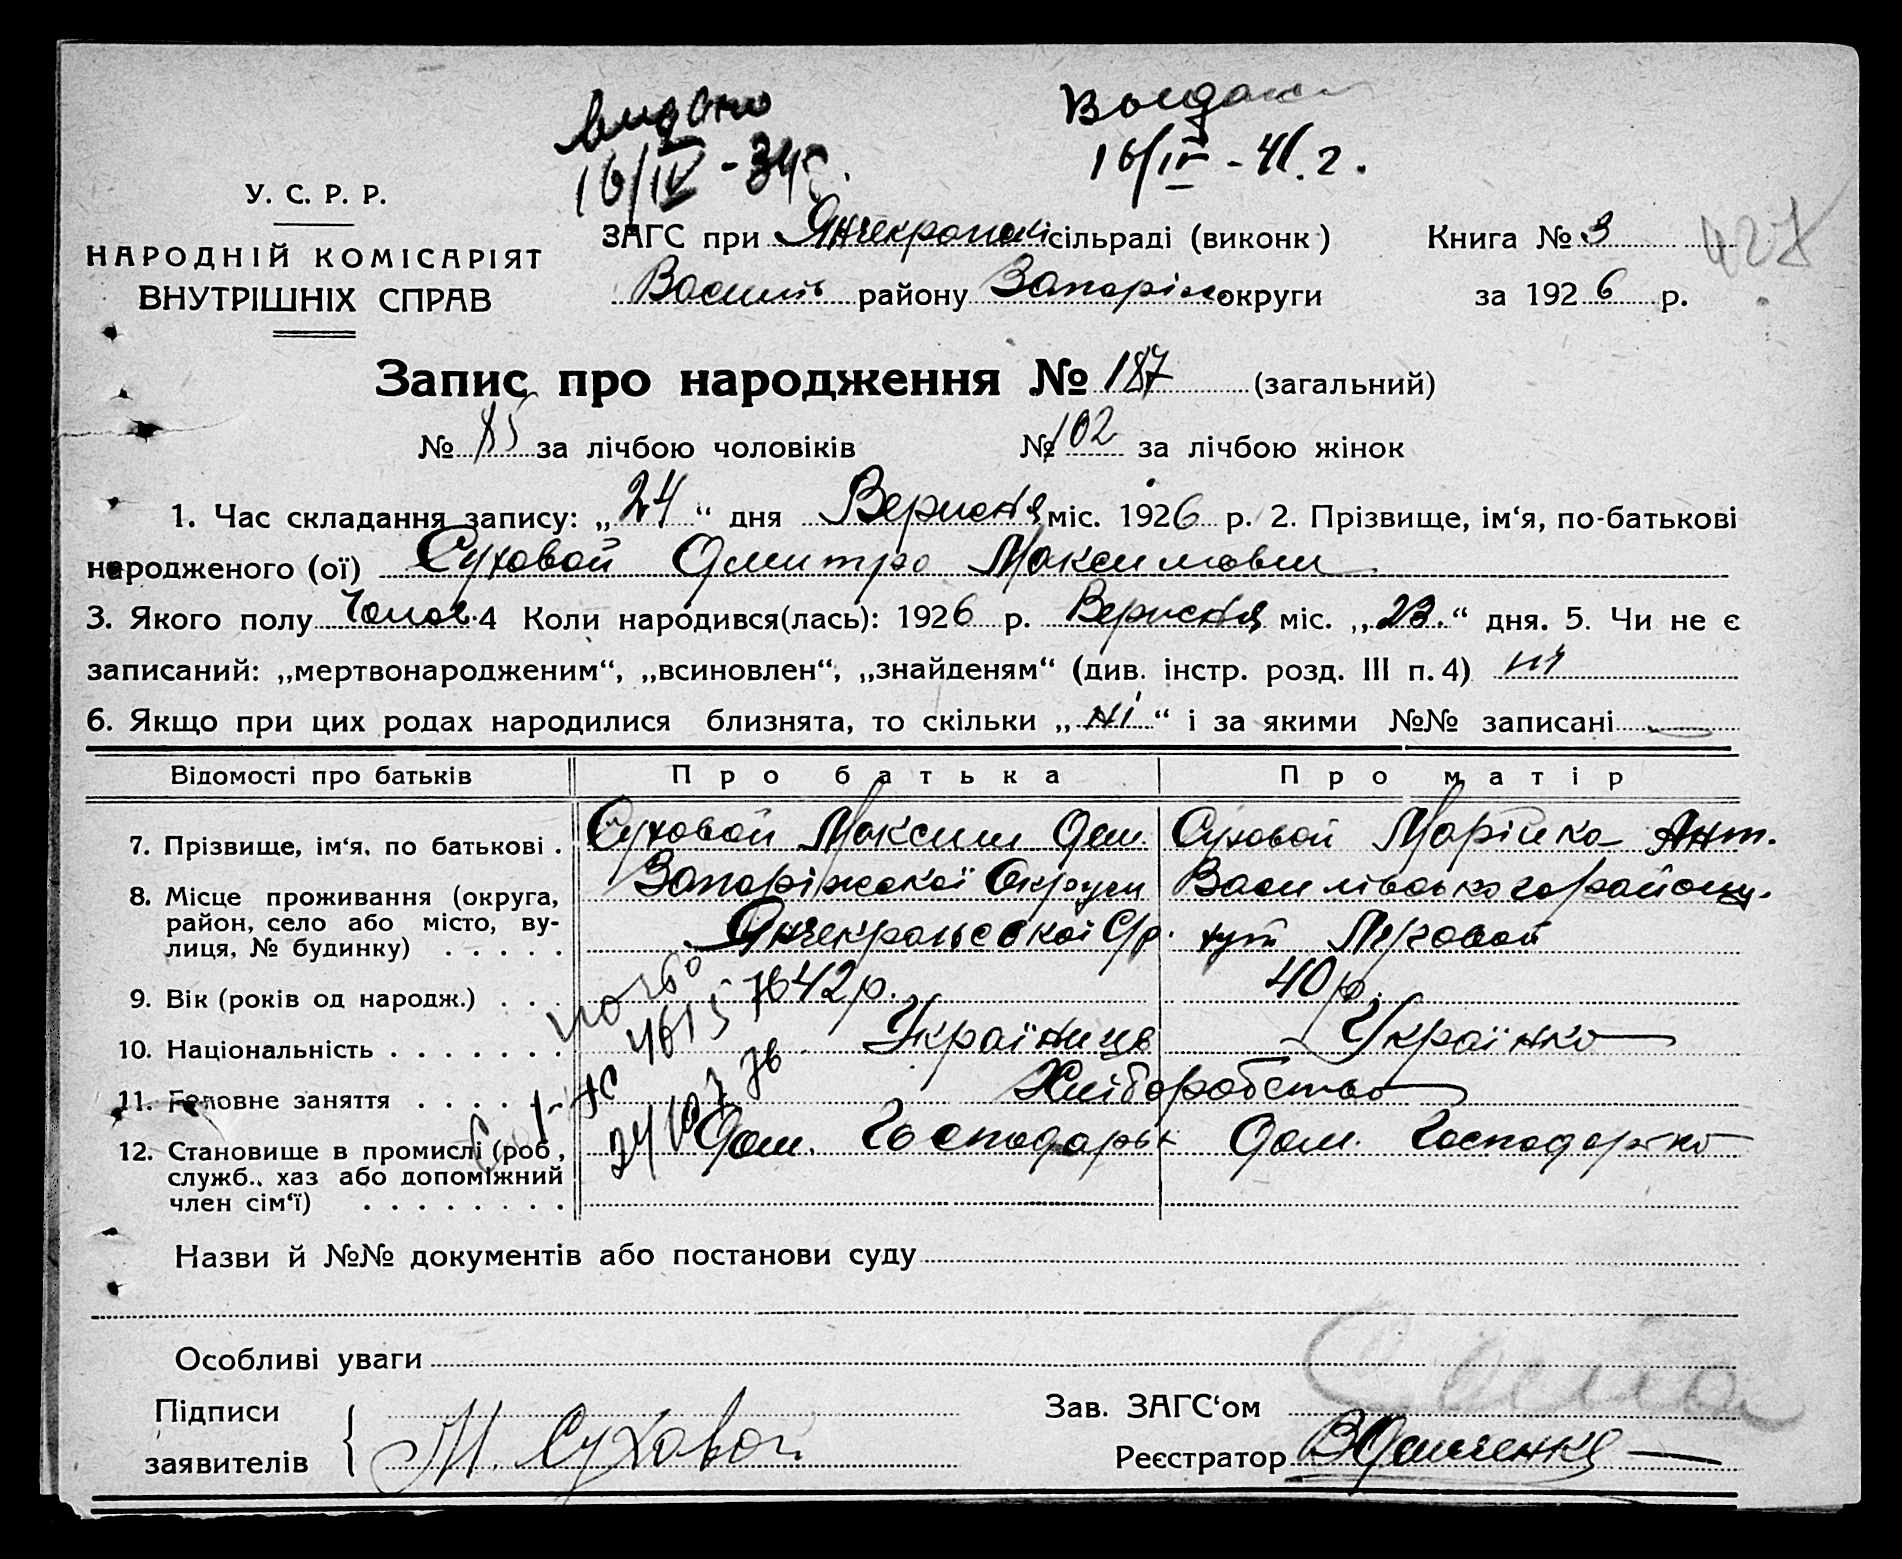 видано
16/IV - 34
16/IV - 41. г.
427
У. С. Р. Р.
НАРОДНІЙ КОМІСАРІЯТ
ВНУТРІШНІХ СПРАВ
ЗАГС при сільраді (виконк) Книга № 3
Васил району Запоріж округи за 1926 р.
Запис про народження № 187 (загальний)
№ 85 за лічбою чоловіків № 102 за лічбою жінок
1. Час складання запису: „24“ дня Вересня міс. 1926 р. 2. Прізвище, ім‘я, по-батькові
народженого (ої) Суховой Дмитро Максимович
3. Якого полу Чолов. 4 Коли народився(лась): 1926 р. Вересня міс. „23.“ дня. 5. Чи не є
записаний: „мертвонародженим“, „всиновлен“, „знайденям“ (див. інстр. розд. III п. 4) ні
6. Якщо при цих родах народилися близнята, то скільки „ні“ і за якими №№ записані —
Відомості про батьків Про батька Про матір
7. Прізвище, ім‘я, по батькові . Суховой Максим Дем. Суховой Марійка Ант.
8. Місце проживання (округа, Запоріжської Округи Василівського району.
район, село або місто, ву-
лиця, № будинку) . . . . . Янчекракської С/р. хут
9. Вік (років од народж.) . . . 42 р. 40 р.
10. Національність . . . . . . . Українець Українка
11. Головне заняття . . . . . Хліборобство
12. Становище в промислі (роб, Дом. Господарь Дом. Господарка
служб., хаз або допоміжний
член сім‘ї) . . . . . . . .
Назви й №№ документів або постанови суду
Особливі уваги
Підписи Зав. ЗАГС‘ом
заявителів М. Суховой Реєстратор